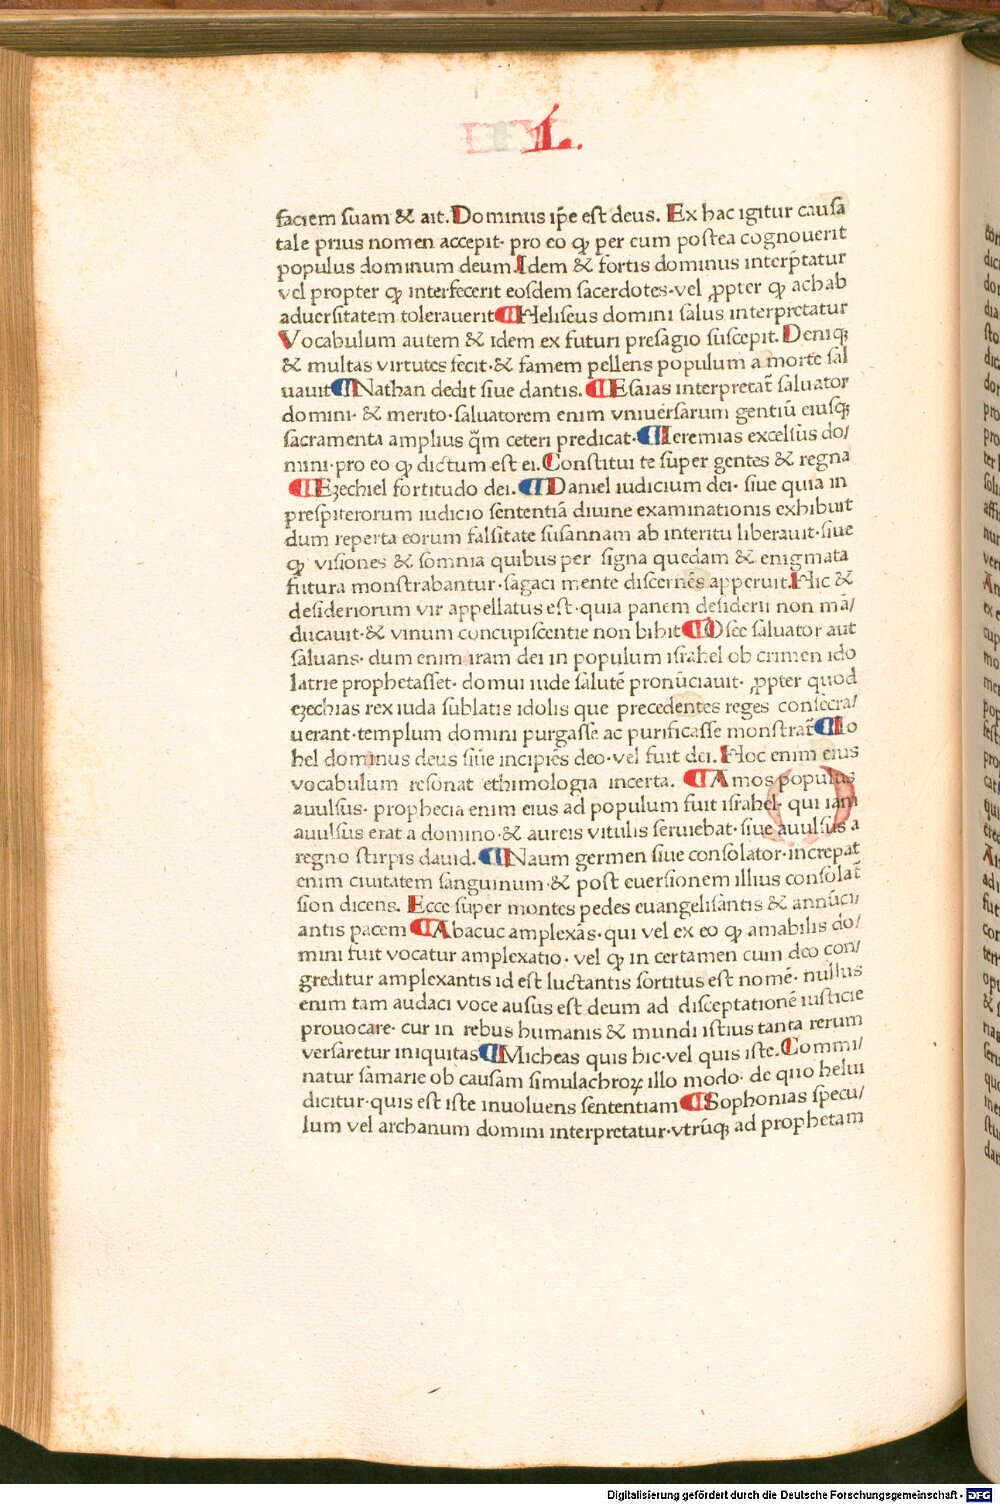 L.
faciem suam & ait. Dominus ip̄e est deus. Ex hac igitur causa
tale prius nomen accepit· pro eo ꝙ per eum postea cognouerit
populus dominum deum. Idem & fortis dominus interp̄tatur
vel propter ꝙ interfecerit eosdem sacerdotes·vel ꝓpter ꝙ achab
aduersitatem tolerauerit ¶ Heliseus domini salus interpretatur
Vocabulum autem & idem ex futuri presagio suscepit. Deniqꝫ
& multas virtutes fecit·& famem pellens populum a morte sal
uauit ¶ Nathan dedit siue dantis. ¶ Esaias interpretat̄ saluator
domini· & merito·saluatorem enim vniuersarum gentiū eiusqꝫ
sacramenta amplius q̄m ceteri predicat· ¶ Ieremias excelsus do/
mini·pro eo ꝙ dictum est ei. Constitui te super gentes & regna
¶ Ezechiel fortitudo dei. ¶ Daniel iudicium dei· siue quia in
prespiterorum iudicio sententiā diuine examinationis exhibuit
dum reperta eorum falsitate susannam ab interitu liberauit·siue
ꝙ visiones & somnia quibus per signa quedam & enigmata
futura monstrabantur·sagaci mente discernēs apperuit. Hic &
desideriorum vir appellatus est·quia panem desiderii non mā/
ducauit·& vinum concupiscentie non bibit ¶ Osee saluator aut
saluans· dum enim iram dei in populum israhel ob crimen ido
latrie prophetasset· domui iude salutē pronūciauit· ꝓpter quod
ezechias rex iuda sublatis idolis que precedentes reges consecra/
uerant·templum domini purgasse ac purificasse monstrat̄ ¶ Io
hel dominus deus siue incipiēs deo·vel fuit dei. Hoc enim eius
vocabulum resonat ethimologia incerta. ¶ Amos populus
auulsus· prophecia enim eius ad populum fuit israhel· qui iam
auulsus erat a domino·& aureis vitulis seruiebat·siue auulsus a
regno stirpis dauid. ¶ Naum germen siue consolator·increpat
enim ciuitatem sanguinum·& post euersionem illius consolat̄
sion dicens. Ecce super montes pedes euangelisantis & annūci/
antis pacem ¶ Abacuc amplexās·qui vel ex eo ꝙ amabilis do/
mini fuit vocatur amplexatio· vel ꝙ in certamen cum deo con/
greditur amplexantis id est luctantis sortitus est nomē· nullus
enim tam audaci voce ausus est deum ad disceptationē iusticie
prouocare· cur in rebus humanis & mundi istius tanta rerum
versaretur iniquitas ¶ Micheas quis hic·vel quis iste. Commi/
natur samarie ob causam simulachroꝝ illo modo· de quo helui
dicitur·quis est iste inuoluens sententiam ¶ Sophonias specu/
lum vel archanum domini interpretatur·vtrūqꝫ ad prophetam
Digitalisierung gefördert durch die Deutsche Forschungsgemeinschaft - DFG